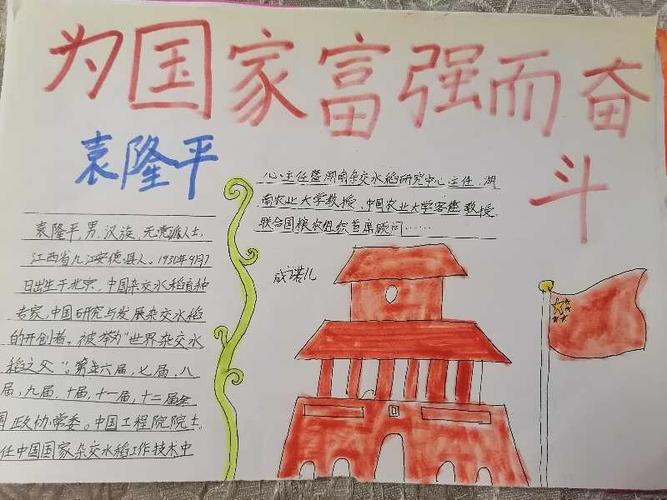 为国家富强而奋
斗
袁隆平
袁隆平,男,汉族,无党派人士,
江西省九江安德县人。1930年9月7
日出生于北京,中国杂交水稻育种
专家,中国研究与发展杂交水稻
的开创者。被誉为“世界杂交水
稻之父”。第五六届,七届,八
届,九届,十届,十一届,十二届全
国政协常委。中国工程院院士。
任中国国家杂交水稻工作技术中
心主任暨湖南杂交水稻研究中心主任,湖
南农业大学教授、中国农业大学客座教授、
联合国粮农组织首席顾问……
成诺儿